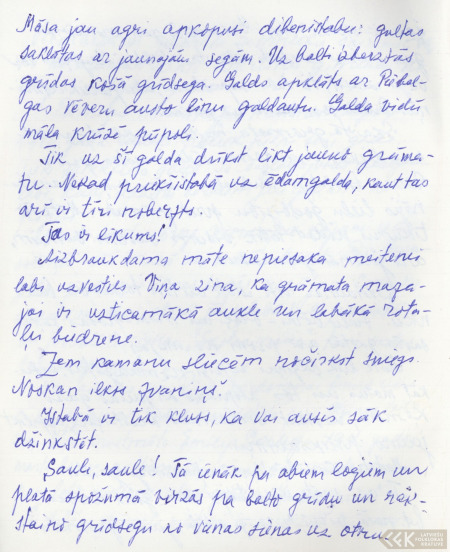 Māsa jau agri apkopusi dibenistabu: gultas
saklātas ar jaunajām segām. Uz balti izberztās
grīdas košā grīdsega. Galds apklāts ar Piebal-
gas vēveru austo linu galdautu. Galda vidū
māla krūzē pūpoli.
Tik uz šī galda drīkst likt jauno grāma-
tu. Nekad priekšistabā uz ēdamgalda, kaut tas
arī ir tīri noberzts.
Tas ir likums!
Aizbraukdama māte nepiesaka meitenei
labi uzvesties. Viņa zina, ka grāmata maza-
jai ir uzticamākā aukle un labākā rota-
ļu biedrene.
Zem kamanu sliecēm nočirkst sniegs.
Noskan ilkss zvaniņš.
Istabā ir tik kluss, ka vai ausīs sāk
džinkstēt.
Saule, saule! Tā ienāk pa abiem logiem un
platā spožumā virzās pa balto grīdu un rak-
staino grīdsegu no vienas sienas uz otru.
LATVIEŠU
FOLKLORAS
KRĀTUVE